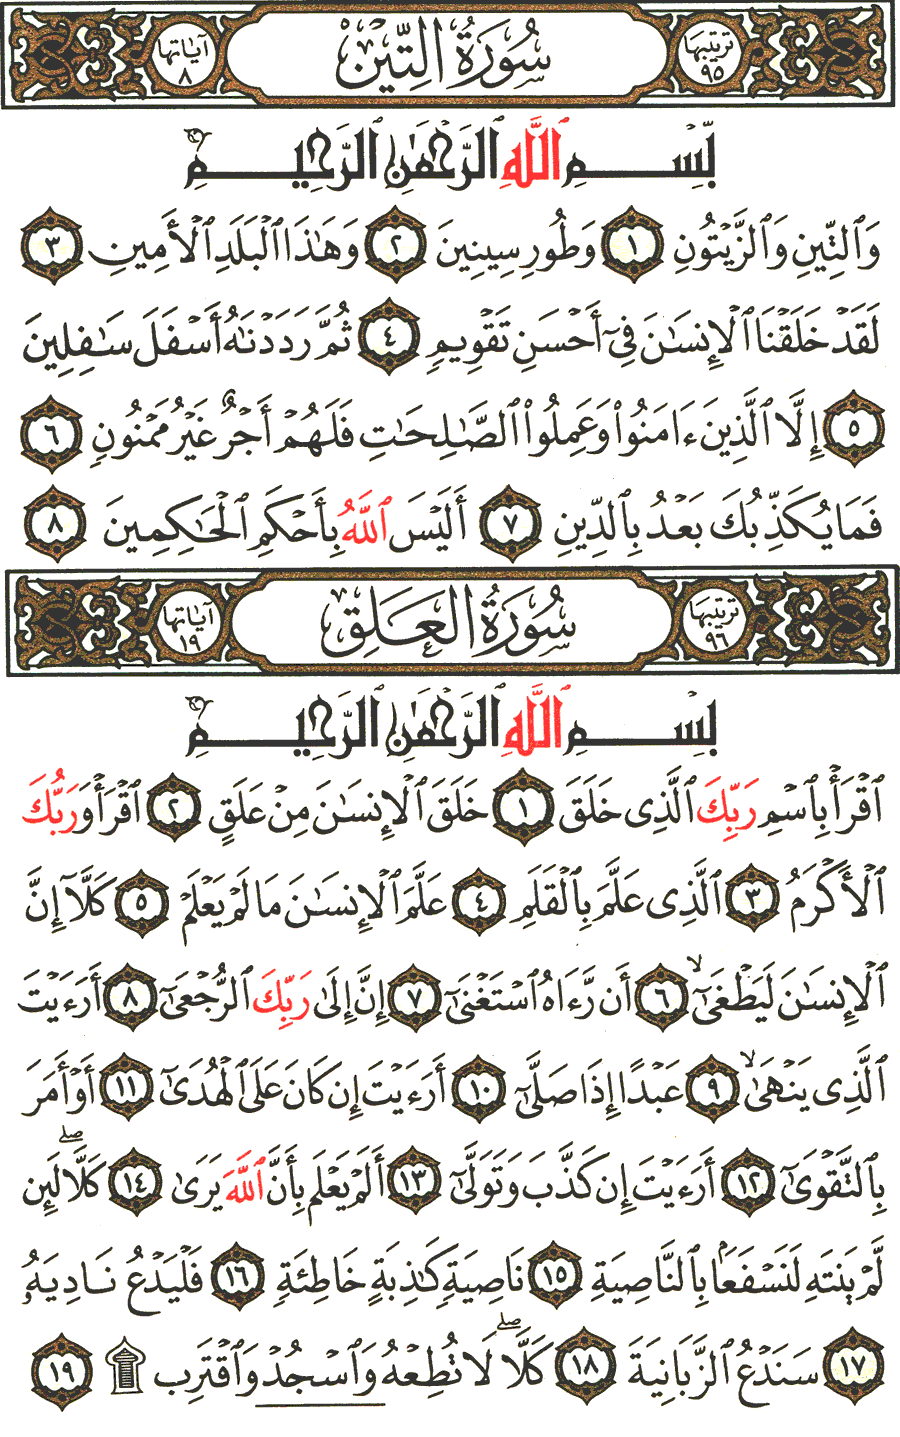 ترتيبها ٩٥ سُورَةُ التِّينِ آياتها ٨
بِّسْمِ ٱللَّهِ ٱلرَّحْمَٰنِ ٱلرَّحِيمِ
وَٱلتِّينِ وَٱلزَّيْتُونِ ١ وَطُورِ سِينِينَ ٢ وَهَٰذَا ٱلْبَلَدِ ٱلْأَمِينِ ٣
لَقَدْ خَلَقْنَا ٱلْإِنسَٰنَ فِىٓ أَحْسَنِ تَقْوِيمٍ ٤ ثُمَّ رَدَدْنَٰهُ أَسْفَلَ سَٰفِلِينَ
٥ إِلَّا ٱلَّذِينَ ءَامَنُوا۟ وَعَمِلُوا۟ ٱلصَّٰلِحَٰتِ فَلَهُمْ أَجْرٌ غَيْرُ مَمْنُونٍ ٦
فَمَا يُكَذِّبُكَ بَعْدُ بِٱلدِّينِ ٧ أَلَيْسَ ٱللَّهُ بِأَحْكَمِ ٱلْحَٰكِمِينَ ٨
ترتيبها ٩٦ سُورَةُ العَلَقِ آياتها ١٩
بِسْمِ ٱللَّهِ ٱلرَّحْمَٰنِ ٱلرَّحِيمِ
ٱقْرَأْ بِٱسْمِ رَبِّكَ ٱلَّذِى خَلَقَ ١ خَلَقَ ٱلْإِنسَٰنَ مِنْ عَلَقٍ ٢ ٱقْرَأْ وَرَبُّكَ
ٱلْأَكْرَمُ ٣ ٱلَّذِى عَلَّمَ بِٱلْقَلَمِ ٤ عَلَّمَ ٱلْإِنسَٰنَ مَا لَمْ يَعْلَمْ ٥ كَلَّآ إِنَّ
ٱلْإِنسَٰنَ لَيَطْغَىٰٓ ۙ ٦ أَن رَّءَاهُ ٱسْتَغْنَىٰٓ ٧ إِنَّ إِلَىٰ رَبِّكَ ٱلرُّجْعَىٰٓ ٨ أَرَءَيْتَ
ٱلَّذِى يَنْهَىٰ ۙ ٩ عَبْدًا إِذَا صَلَّىٰٓ ١٠ أَرَءَيْتَ إِن كَانَ عَلَى ٱلْهُدَىٰٓ ١١ أَوْ أَمَرَ
بِٱلتَّقْوَىٰٓ ١٢ أَرَءَيْتَ إِن كَذَّبَ وَتَوَلَّىٰٓ ١٣ أَلَمْ يَعْلَم بِأَنَّ ٱللَّهَ يَرَىٰ ١٤ كَلَّا ۖ لَئِن
لَّمْ يَنتَهِ لَنَسْفَعًۢا بِٱلنَّاصِيَةِ ١٥ نَاصِيَةٍ كَٰذِبَةٍ خَاطِئَةٍ ١٦ فَلْيَدْعُ نَادِيَهُۥ
١٧ سَنَدْعُ ٱلزَّبَانِيَةَ ١٨ كَلَّا ۖ لَا تُطِعْهُ وَٱسْجُدْ وَٱقْتَرِب ۩ ١٩